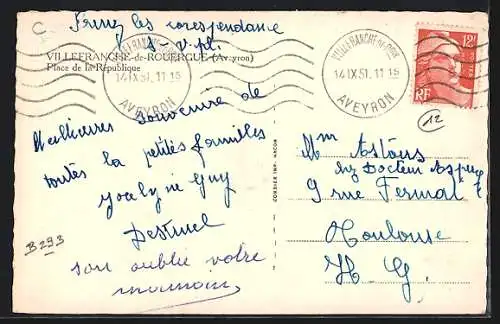 C
les correspondance
s.v.pl.
VILLEFRANCHE-de-ROUERGUE (Aveyron)
Place de la République
VILLEFRANCHE-DE-ROUERGUE
14 IX 51. 11 15
AVEYRON
VILLEFRANCHE-DE-ROUERGUE
14 IX 51. 11 15
AVEYRON
12F
RF
12
Meilleures souvenire de
toutes la petites familles
Jocelyne Guy
B293
son oublie votre
maman
COMBIER IMP. MACON
Mm Astous
chez Docteur
9 rue Fermat
Toulouse
H. G.